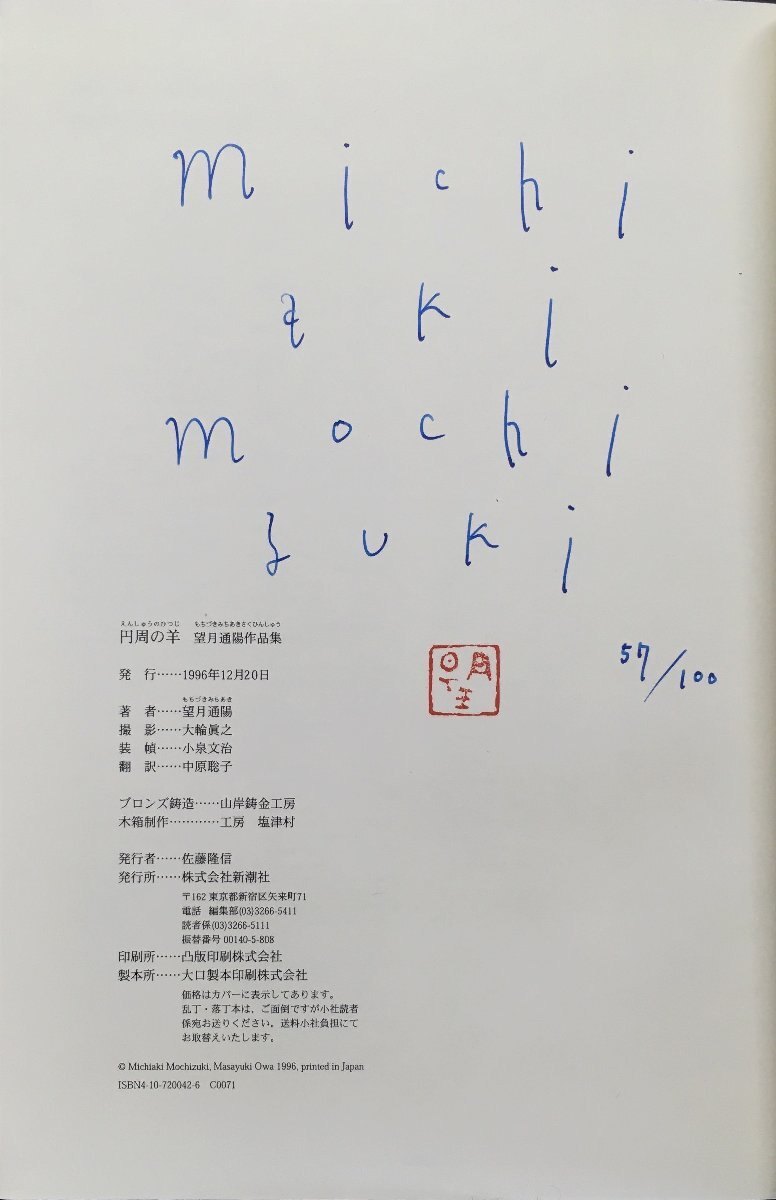 michi
aki
mochi
zuki
えんしゅうのひつじ　もちづきみちあきさくひんしゅう
円周の羊　望月通陽作品集
57/100
発　行……1996年12月20日
もちづきみちあき
著　者……望月通陽
撮　影……大輪眞之
装　幀……小泉文治
翻　訳……中原聡子
ブロンズ鋳造……山岸鋳金工房
木箱制作…………工房　塩津村
発行者……佐藤隆信
発行所……株式会社新潮社
〒162 東京都新宿区矢来町71
電話　編集部(03)3266-5411
読者係(03)3266-5111
振替番号 00140-5-808
印刷所……凸版印刷株式会社
製本所……大口製本印刷株式会社
価格はカバーに表示してあります。
乱丁・落丁本は、ご面倒ですが小社読者
係宛お送りください。送料小社負担にて
お取替えいたします。
© Michiaki Mochizuki, Masayuki Owa 1996, printed in Japan
ISBN4-10-720042-6　C0071